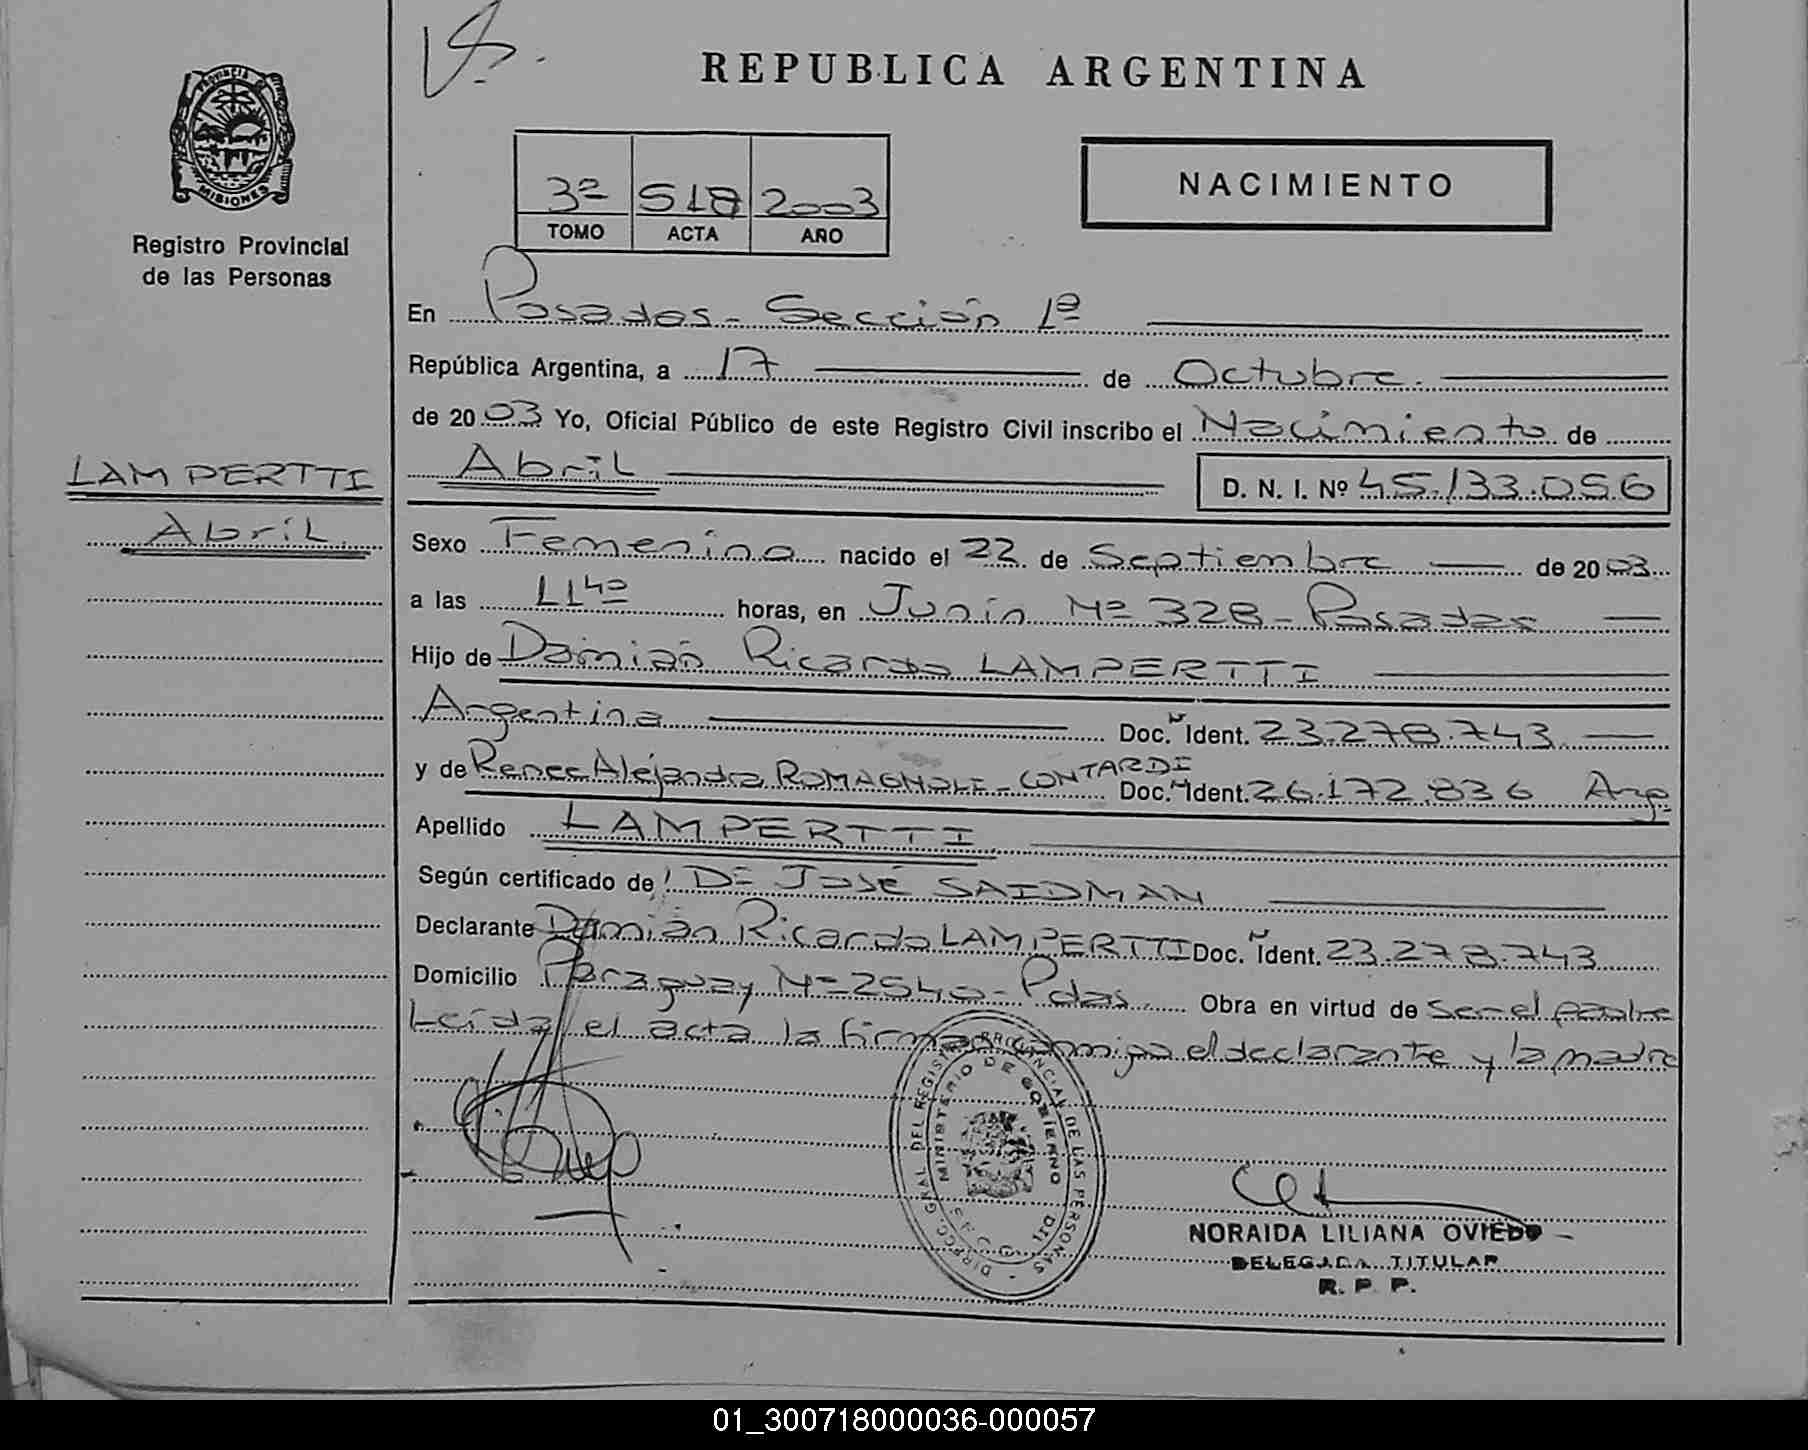 REPUBLICA ARGENTINA
PROVINCIA DE MISIONES
Registro Provincial
de las Personas
NACIMIENTO
3º 518 2003
TOMO ACTA AÑO
En Posadas - Sección 1ª
República Argentina, a 17 de Octubre.
de 2003 Yo, Oficial Público de este Registro Civil inscribo el Nacimiento de
Abril D. N. I. Nº 45.133.056
LAMPERTTI
Abril.
Sexo Femenino nacido el 22 de Septiembre de 2003
a las 11⁴⁰ horas, en Junín Nº 328 - Posadas
Hijo de Damián Ricardo LAMPERTTI
Argentina Doc. Ident. 23.278.743
y de Renee Alejandra ROMAGNOLI - CONTARDI Doc. Ident. 26.172.836 Arg.
Apellido LAMPERTTI
Según certificado de Dr José SAIDMAN
Declarante Damián Ricardo LAMPERTTI Doc. Ident. 23.278.743
Domicilio Paraguay Nº 2540 - Pdas. Obra en virtud de ser el padre
Leída el acta la firman conmigo el declarante y la madre
DIRECC. GRAL. DEL REGISTRO PROVINCIAL DE LAS PERSONAS
MINISTERIO DE GOBIERNO
NORAIDA LILIANA OVIEDO
DELEGADA TITULAR
R. P. P.
01_300718000036-000057